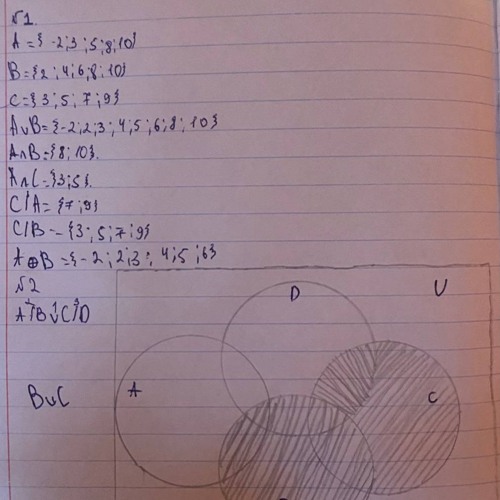 №1.
A = {-2; 3; 5; 8; 10}
B = {2; 4; 6; 8; 10}
C = {3; 5; 7; 9}
A∪B = {-2; 2; 3; 4; 5; 6; 8; 10}
A∩B = {8; 10}.
A∩C = {3; 5}.
C/A = {7; 9}
C/B = {3; 5; 7; 9}
A⊕B = {-2; 2; 3; 4; 5; 6}
№2
D U
A C
B∪C